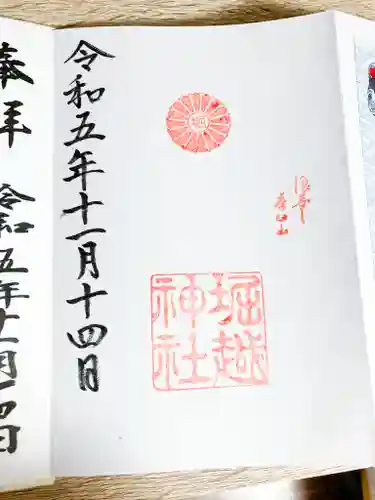 令和五年十一月十四日
堀越
神社
奉拝
令和五年十一月十四日